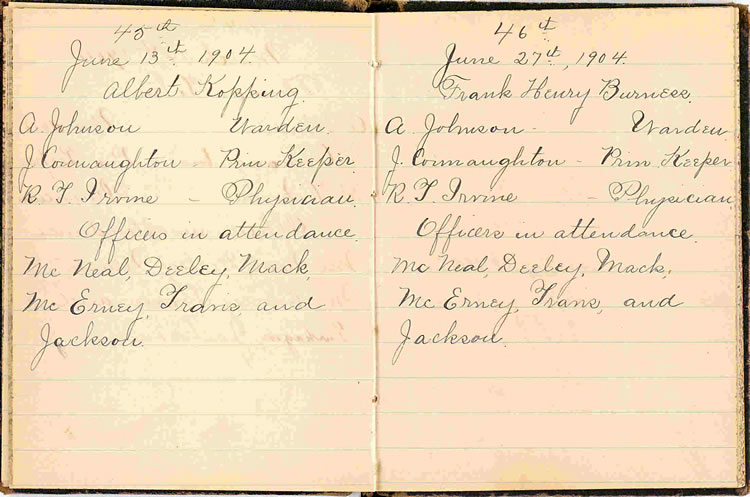 45th
June 13th, 1904.
Albert Kopping.
A. Johnson Warden.
J. Connaughton Prin Keeper.
R. T. Irvine - Physician.
Officers in attendance.
Mc Neal, Deeley, Mack,
Mc Erney, Trans, and
Jackson.
46th
June 27th, 1904.
Frank Henry Burness.
A. Johnson - Warden
J. Connaughton - Prin Keeper
R. T. Irvine - Physician
Officers in attendance.
Mc Neal, Deeley, Mack,
Mc Erney, Trans, and
Jackson.